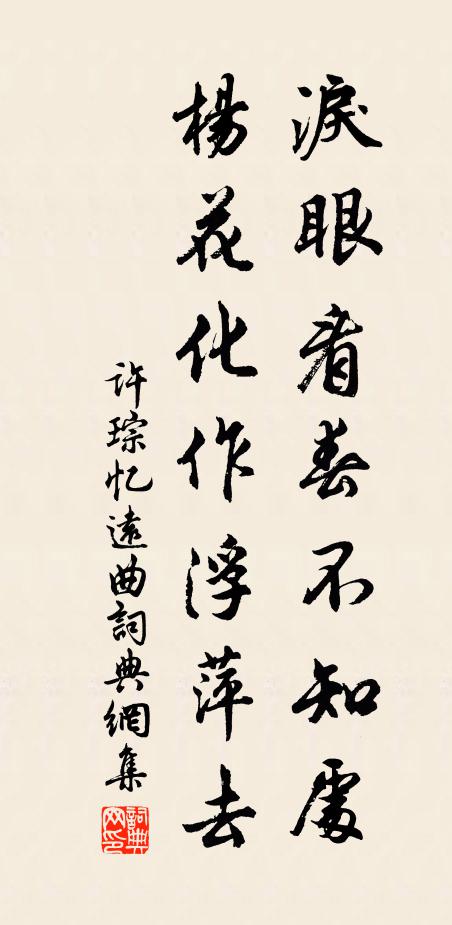 淚眼看春不知處
楊花化作浮萍去
许琮忆遠曲詞典網集
詞典网印